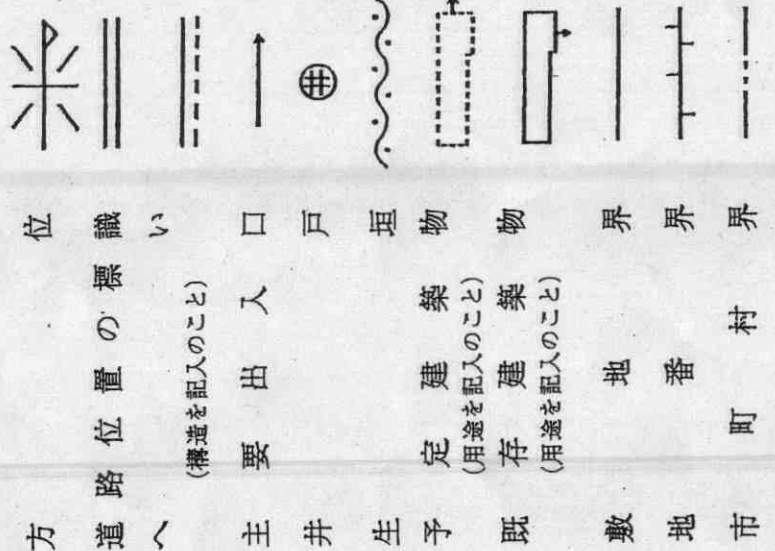 方位
道路位置の標識
へい
(構造を記入のこと)
主要出入口
井戸
生垣
予定建築物
(用途を記入のこと)
既存建築物
(用途を記入のこと)
敷地界
地番界
市町村界